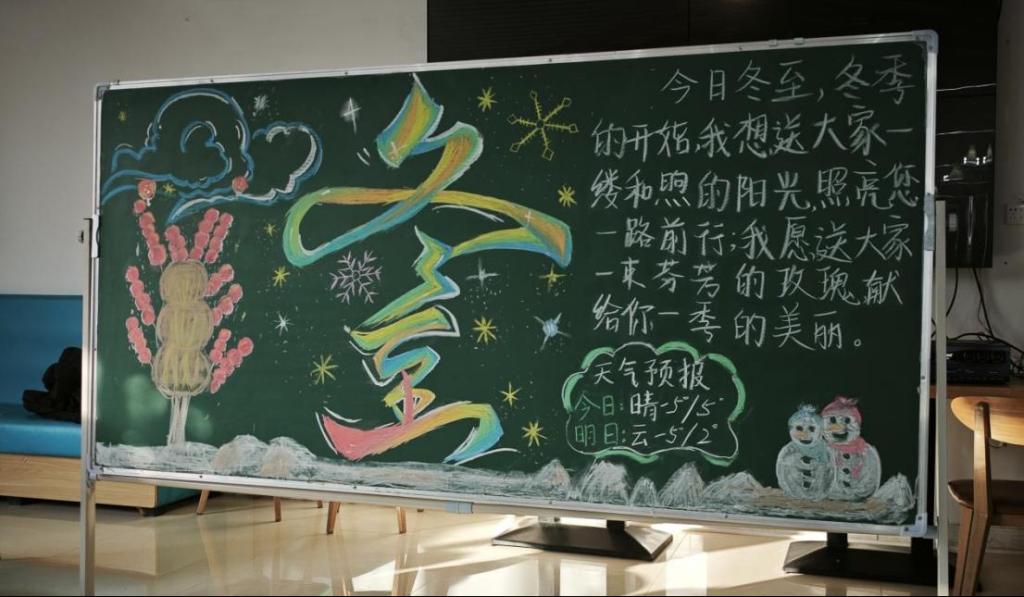 冬至
今日冬至,冬季
的开始,我想送大家一
缕和煦的阳光,照亮您
一路前行;我愿送大家
一束芬芳的玫瑰献
给你一季的美丽。
天气预报
今日:晴-5°/5°
明日:云-5°/2°